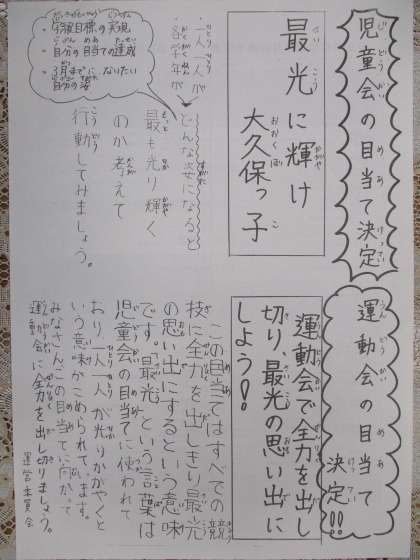 児童会の目当て決定
最光に輝け
大久保っ子
・一人一人が
・各学年が
どんな姿になると
最も光り輝く
のか考えて
行動してみましょう。
・学級目標の実現
・自分の目当ての達成
・3月までになりたい
自分の姿
運動会の目当て
決定!!
運動会で全力を出し
切り、最光の思い出に
しよう!
この目当てはすべての競
技に全力を出しきり最光
の思い出にするという意味
です。最光という言葉は
児童会の目当てに使われて
おり、一人一人が光りかがやくと
いう意味がこめられています。
みなさんこの目当てに向かって
運動会に全力を出し切りましょう。
運営委員会